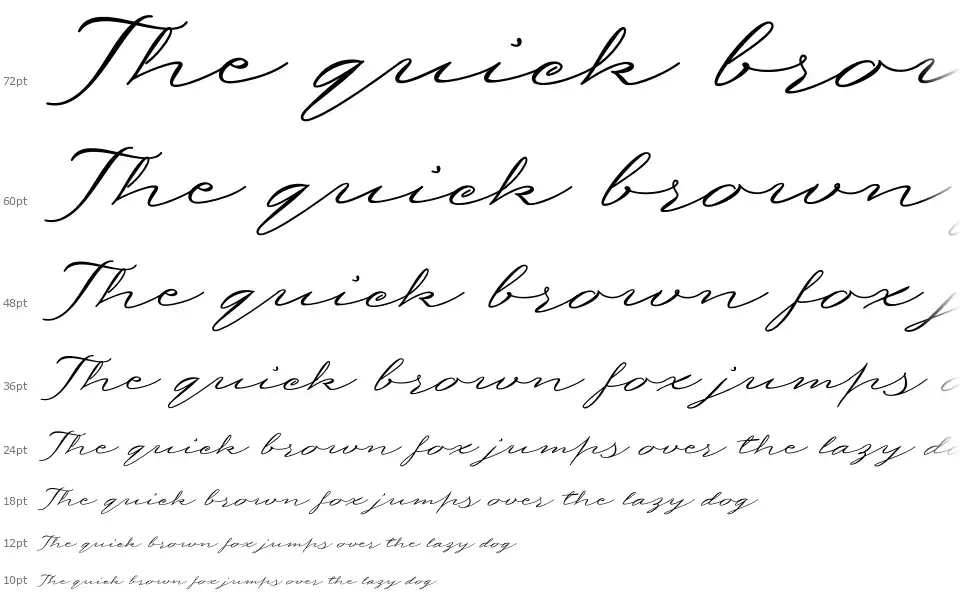 72pt The quick brow
60pt The quick brown
48pt The quick brown fox j
36pt The quick brown fox jumps o
24pt The quick brown fox jumps over the lazy do
18pt The quick brown fox jumps over the lazy dog
12pt The quick brown fox jumps over the lazy dog
10pt The quick brown fox jumps over the lazy dog